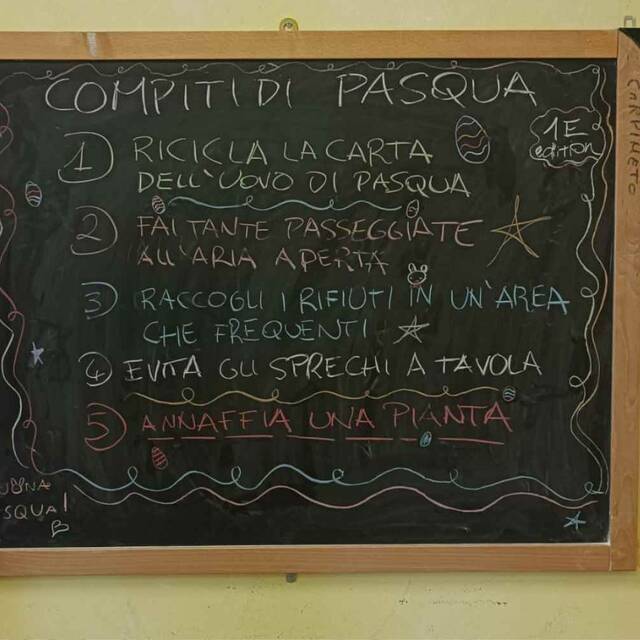 COMPITI DI PASQUA
1E
edition
1 RICICLA LA CARTA
DELL'UOVO DI PASQUA
2 FAI TANTE PASSEGGIATE
ALL'ARIA APERTA
3 RACCOGLI I RIFIUTI IN UN'AREA
CHE FREQUENTI
4 EVITA GLI SPRECHI A TAVOLA
5 ANNAFFIA UNA PIANTA
CARPINETO